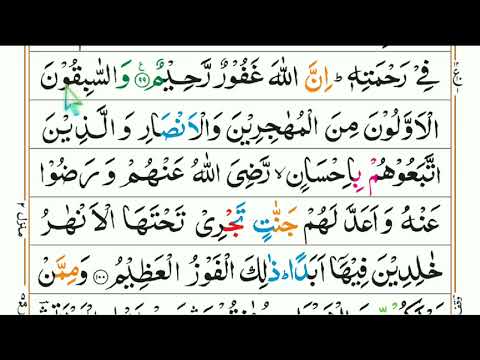 فِیْ رَحْمَتِهٖ ؕ اِنَّ اللّٰهَ غَفُوْرٌ رَّحِیْمٌ ﴿۹۹﴾ وَالسّٰبِقُوْنَ
الْاَوَّلُوْنَ مِنَ الْمُهٰجِرِیْنَ وَالْاَنْصَارِ وَ الَّذِیْنَ
اتَّبَعُوْهُمْ بِاِحْسَانٍ ۙ رَّضِیَ اللّٰهُ عَنْهُمْ وَ رَضُوْا
عَنْهُ وَ اَعَدَّ لَهُمْ جَنّٰتٍ تَجْرِیْ تَحْتَهَا الْاَنْهٰرُ
خٰلِدِیْنَ فِیْهَاۤ اَبَدًا ؕ ذٰلِكَ الْفَوْزُ الْعَظِیْمُ ﴿۱۰۰﴾ وَمِمَّنْ